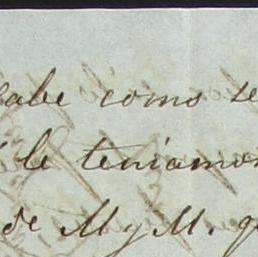 sabe como se
le teniamos
de M y M. q